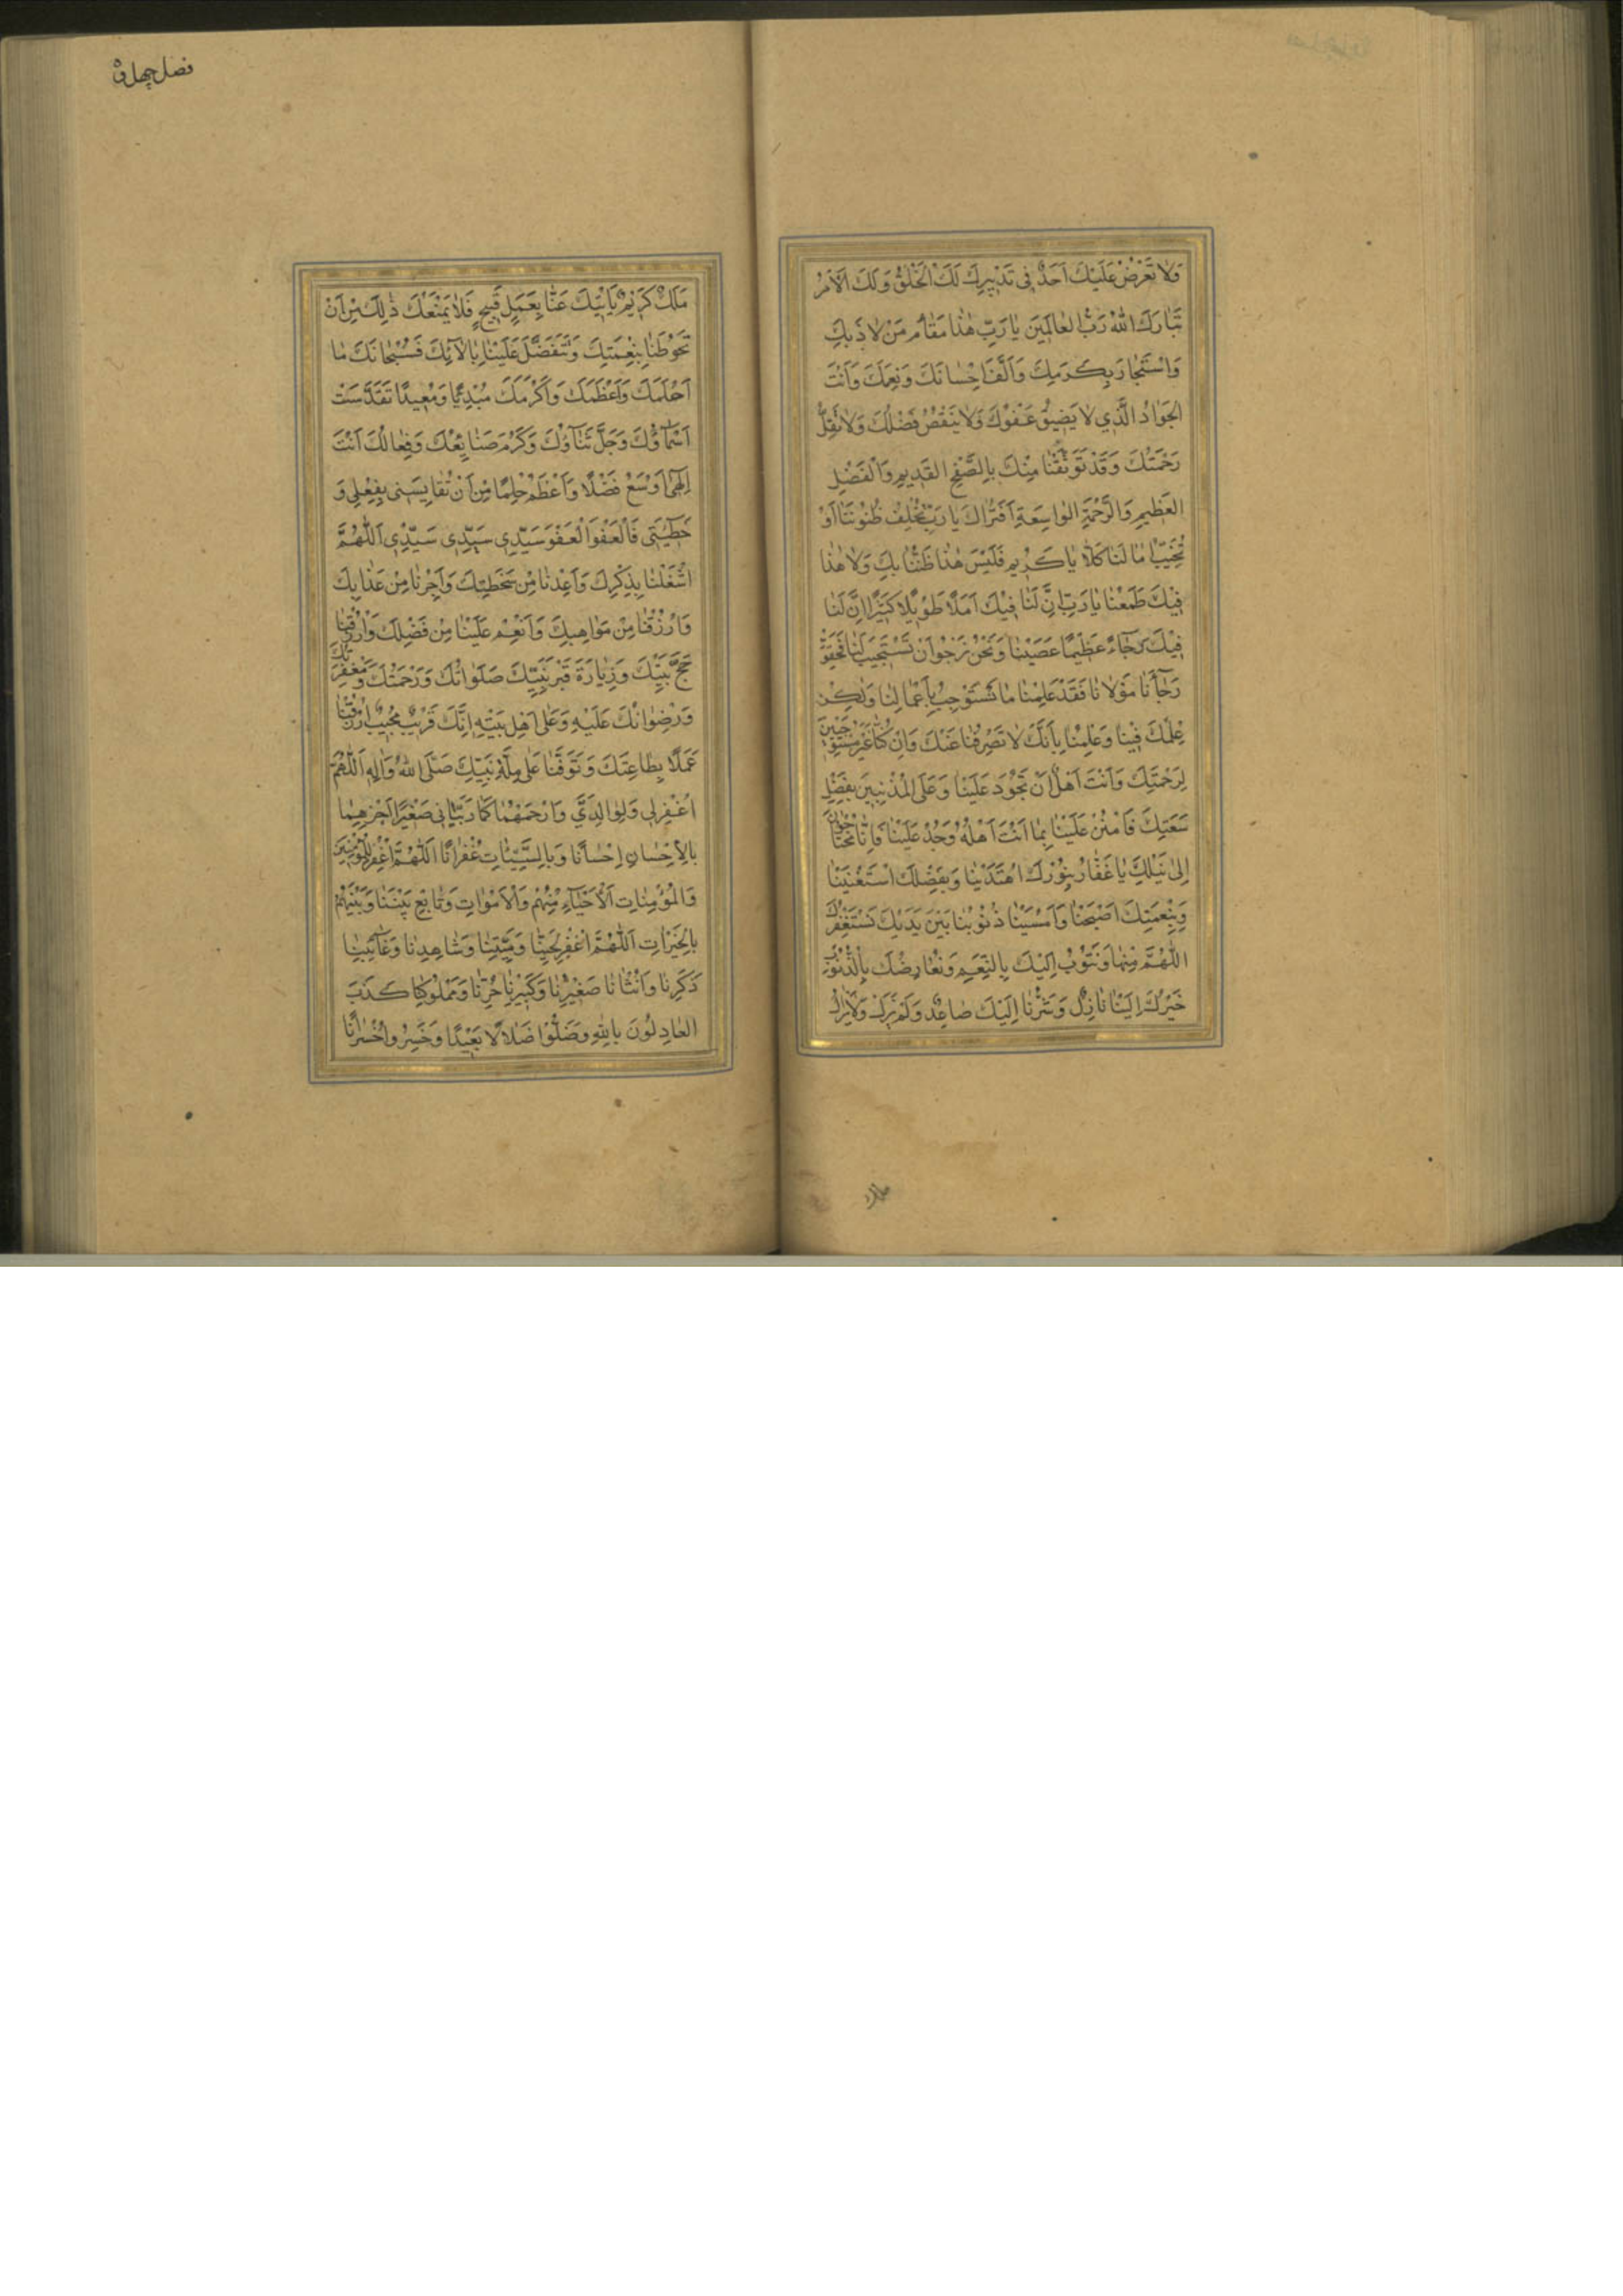 وَلَا تَعَرَّضْ عَلَيْكَ اَحَدٌ فِي تَدْبِيرِكَ لَكَ الْخَلْقُ وَلَكَ الْاَمْرُ
تَبَارَكَ اللهُ رَبُّ الْعَالَمِينَ يَا رَبِّ هٰذَا مَقَامُ مَنْ لَاذَ بِكَ
وَاسْتَجَارَ بِكَرَمِكَ وَاَلِفَ اِحْسَانَكَ وَنِعَمَكَ وَاَنْتَ
الْجَوَادُ الَّذِي لَا يَضِيقُ عَفْوُكَ وَلَا يَنْقُصُ فَضْلُكَ وَلَا تَقِلُّ
رَحْمَتُكَ وَقَدْ تَوَثَّقْنَا مِنْكَ بِالصَّفْحِ الْقَدِيمِ وَالْفَضْلِ
الْعَظِيمِ وَالرَّحْمَةِ الْوَاسِعَةِ اَفَتُرَاكَ يَا رَبِّ تُخْلِفُ ظُنُونَنَا اَوْ
تُخَيِّبُ اٰمَالَنَا كَلَّا يَا كَرِيمُ فَلَيْسَ هٰذَا ظَنُّنَا بِكَ وَلَا هٰذَا
فِيكَ طَمَعُنَا يَا رَبِّ اِنَّ لَنَا فِيكَ اَمَلًا طَوِيلًا كَثِيرًا اِنَّ لَنَا
فِيكَ رَجَاءً عَظِيمًا عَصَيْنَاكَ وَنَحْنُ نَرْجُو اَنْ تَسْتَجِيبَ لَنَا فَحَقِّقْ
رَجَاءَنَا مَوْلَانَا فَقَدْ عَلِمْنَا مَا نَسْتَوْجِبُ بِاَعْمَالِنَا وَلٰكِنْ
عِلْمُكَ فِينَا وَعِلْمُنَا بِاَنَّكَ لَا تَصْرِفُنَا عَنْكَ وَاِنْ كُنَّا غَيْرَ مُسْتَوْجِبِينَ
لِرَحْمَتِكَ وَاَنْتَ اَهْلٌ اَنْ تَجُودَ عَلَيْنَا وَعَلَى الْمُذْنِبِينَ بِفَضْلِ
سَعَتِكَ فَامْنُنْ عَلَيْنَا بِمَا اَنْتَ اَهْلُهُ وَجُدْ عَلَيْنَا فَاِنَّا مُحْتَاجُونَ
اِلَى نَيْلِكَ يَا غَفَّارُ بِنُورِكَ اهْتَدَيْنَا وَبِفَضْلِكَ اسْتَغْنَيْنَا
وَبِنِعْمَتِكَ اَصْبَحْنَا وَاَمْسَيْنَا ذُنُوبُنَا بَيْنَ يَدَيْكَ نَسْتَغْفِرُكَ
اللّٰهُمَّ مِنْهَا وَنَتُوبُ اِلَيْكَ بِالنِّعَمِ وَنُعَارِضُكَ بِالذُّنُوبِ
خَيْرُكَ اِلَيْنَا نَازِلٌ وَشَرُّنَا اِلَيْكَ صَاعِدٌ وَلَمْ يَزَلْ وَلَا يَزَالُ
فصل چهل و
مَلَكٌ كَرِيمٌ يَأْتِيكَ عَنَّا بِعَمَلٍ قَبِيحٍ فَلَا يَمْنَعُكَ ذٰلِكَ مِنْ اَنْ
تَحُوطَنَا بِنِعْمَتِكَ وَتَتَفَضَّلَ عَلَيْنَا بِاٰلَائِكَ فَسُبْحَانَكَ مَا
اَحْلَمَكَ وَاَعْظَمَكَ وَاَكْرَمَكَ مُبْدِئًا وَمُعِيدًا تَقَدَّسَتْ
اَسْمَاؤُكَ وَجَلَّ ثَنَاؤُكَ وَكَرُمَ صَنَائِعُكَ وَفِعَالُكَ اَنْتَ
اِلٰهِي اَوْسَعُ فَضْلًا وَاَعْظَمُ حِلْمًا مِنْ اَنْ تُقَايِسَنِي بِفِعْلِي وَ
خَطِيئَتِي فَالْعَفْوَ الْعَفْوَ سَيِّدِي سَيِّدِي سَيِّدِي اَللّٰهُمَّ
اشْغَلْنَا بِذِكْرِكَ وَاَعِذْنَا مِنْ سَخَطِكَ وَاَجِرْنَا مِنْ عَذَابِكَ
وَارْزُقْنَا مِنْ مَوَاهِبِكَ وَاَنْعِمْ عَلَيْنَا مِنْ فَضْلِكَ وَارْزُقْنَا
حَجَّ بَيْتِكَ وَزِيَارَةَ قَبْرِ نَبِيِّكَ صَلَوَاتُكَ وَرَحْمَتُكَ وَمَغْفِرَتُكَ
وَرِضْوَانُكَ عَلَيْهِ وَعَلَى اَهْلِ بَيْتِهِ اِنَّكَ قَرِيبٌ مُجِيبٌ ارْزُقْنَا
عَمَلًا بِطَاعَتِكَ وَتَوَفَّنَا عَلَى مِلَّةِ نَبِيِّكَ صَلَّى اللهُ وَاٰلِهِ اَللّٰهُمَّ
اغْفِرْ لِي وَلِوَالِدَيَّ وَارْحَمْهُمَا كَمَا رَبَّيَانِي صَغِيرًا اجْزِهِمَا
بِالْاِحْسَانِ اِحْسَانًا وَبِالسَّيِّئَاتِ غُفْرَانًا اَللّٰهُمَّ اغْفِرْ لِلْمُؤْمِنِينَ
وَالْمُؤْمِنَاتِ اَلْاَحْيَاءِ مِنْهُمْ وَالْاَمْوَاتِ وَتَابِعْ بَيْنَنَا وَبَيْنَهُمْ
بِالْخَيْرَاتِ اَللّٰهُمَّ اغْفِرْ لِحَيِّنَا وَمَيِّتِنَا وَشَاهِدِنَا وَغَائِبِنَا
ذَكَرِنَا وَاُنْثَانَا صَغِيرِنَا وَكَبِيرِنَا حُرِّنَا وَمَمْلُوكِنَا كَذَبَ
الْعَادِلُونَ بِاللهِ وَضَلُّوا ضَلَالًا بَعِيدًا وَخَسِرُوا خُسْرَانًا